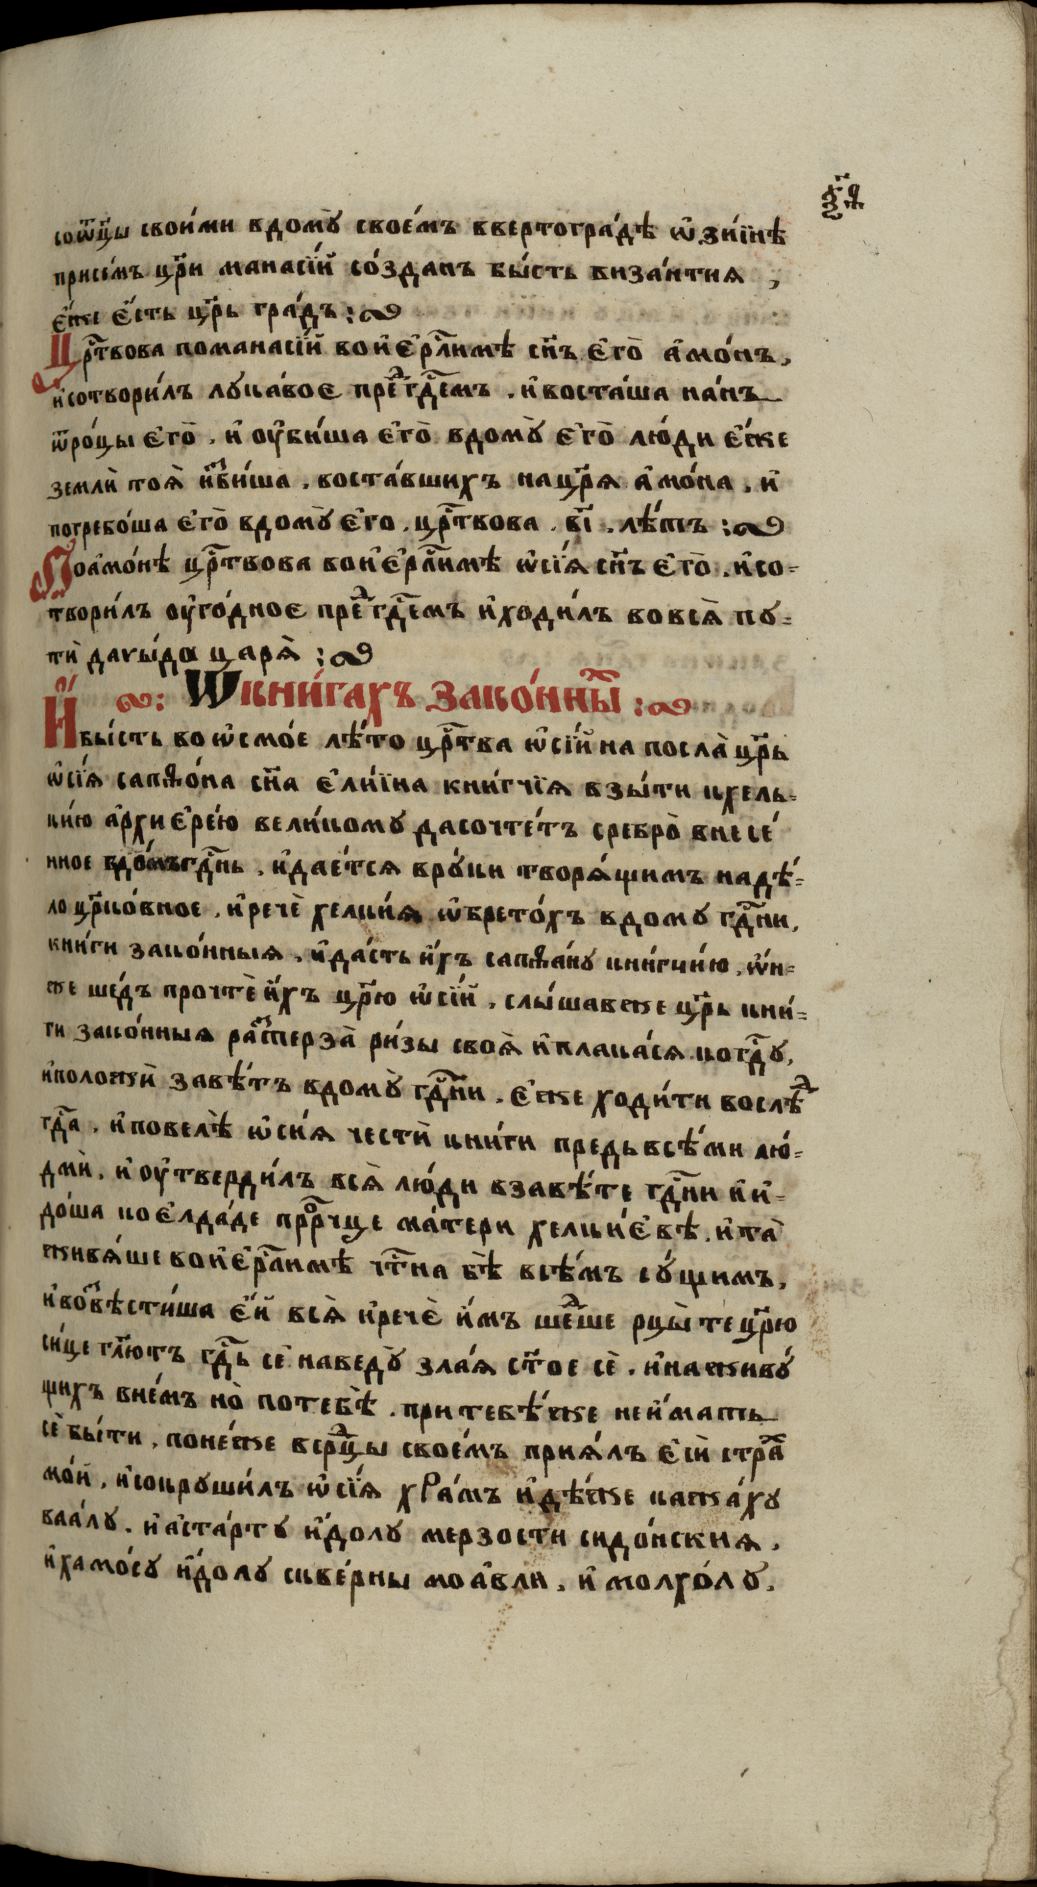 со ѿц҃ы свои́ми в дому̀ свое́мъ в вертогра́дѣ ѡ҆зи́їнѣ
при се́мъ цр҃и манасі́й со́зданъ бы́сть виза́нтия ,
є҆́же є҆́сть цр҃ь гра́дъ :
Цр҃твова по манасі́й во и҆єрл҃имѣ сн҃ъ є҆го̀ а҆мо́нъ,
и҆ сотвори́лъ лука́воє прⷣе гдⷭ҇емъ . и҆ воста́ша на́нъ
ѿро́цы є҆го̀ . и҆ оу҆би́ша є҆го̀ в дому̀ є҆го̀ лю́ди є҆́же
земли̇̀ тоя̀ и҆зⷥби́ша . воста́вшихъ на цр҃я а҆мо́на . и҆
погребо́ша є҆го̀ в дому̀ є҆го . цр҃твова . в҃і . лѣ́тъ :
По а҆мо́нѣ цр҃твова во и҆єрл҃имѣ ѡ҆сі́я сн҃ъ є҆го̀ . и҆ со=
твори́лъ оу҆го́дноє прⷣе гдⷭ҇емъ и҆ ходи́лъ во вся̀ пу=
ти̇̀ давы́да царя̀ :
Ѡ кни́гахъ зако́нныⷯ :
И҆ бы́сть во ѡ҆смо́е лѣ́то цр҃тва ѡ҆сі́йна посла̀ цр҃ь
ѡ҆сі́я сапѳо́на сн҃а є҆ли́їна книгчі́я взы́ти к хель=
ки́ю а҆рхиєре́ю вели́кому да сочте́тъ сребро̀ внесе́
нное в до́мъ гдⷭ҇нь . и҆ дае́тся в ру́ки творя́щимъ на дѣ́=
ло цр҃ко́вное . и҆ речѐ хелки́я ѡ҆брето́хъ в дому гдⷭ҇ни,
кни́ги зако́нныя . и҆ да́сть и҆́хъ сапѳа́ну кни́гчи́ю . ѡ҆́н=
же ше́дъ прочтѐ и҆́хъ цр҃ю ѡ҆сі́й . слы́шавже цр҃ь кни́=
ги зако́нныя раⷥтерза̀ ри́зы своя̀ и҆ плака́ся . ко гдⷭ҇у,
и҆ положи̇̀ завѣ́тъ в дому̀ гдⷭ҇ни . є҆́же ходи́ти во слѣⷣ
гдⷭ҇а . и҆ повелѣ̀ ѡ҆си́я чести̇̀ кни́ги предь всѣ́ми лю́=
дми̇̀ . и҆ оу҆тверди́лъ вся̀ лю́ди в завѣ́те гдⷭ҇ни и҆ и҆=
до́ша ко є҆лда́де прⷪ҇рчце ма́тери хелки́євѣ . и҆ та̀
живя́ше во и҆єрл҃имѣ чтⷭ҇на бѣ̀ всѣ́мъ су́щимъ,
и҆ воⷥвѣсти́ша є҆́й вся̀ и҆ речѐ и҆́мъ шеⷣше рцы̀те цр҃ю
си́це гл҃ютъ гдⷭ҇ь сѐ наведу̀ зла́я ст҃ое сѐ . и҆ на живу́
щихъ в не́мъ но̀ по тебѣ̀ . при тебѣ́же не и҆́мать
сѐ бы́ти . поне́же в срⷣцы свое́мъ прия́лъ є҆си̇̀ страⷯ
мо́й . и҆ сокруши́лъ ѡ҆сі́я хра́мъ и҆дѣ́же кажа́ху
ваа́лу . и҆ а҆ста́рту и҆́долу мерзости сидо́нския .
и҆ хамо́су и҆́долу скве́рны моа҆вли . и҆ молхо́лу .